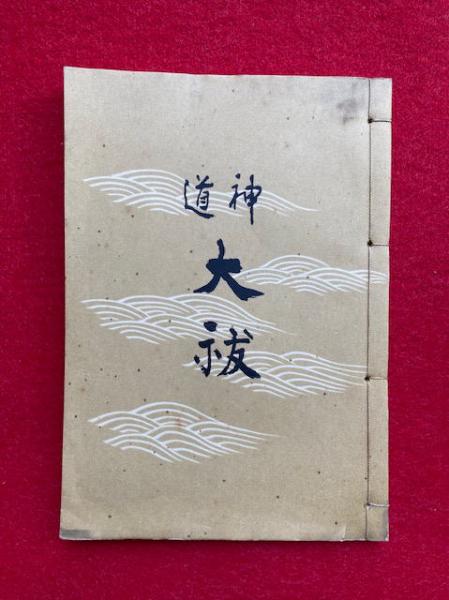 神道
大祓